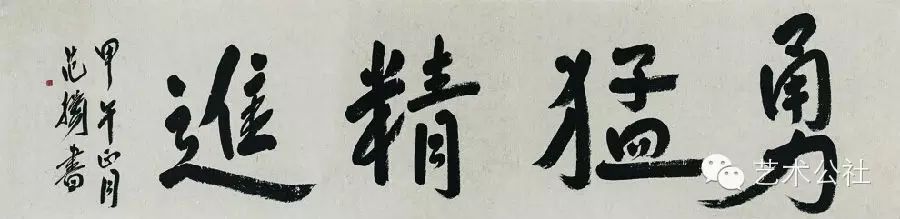 勇猛精進
甲午正月
范揚書
艺术公社